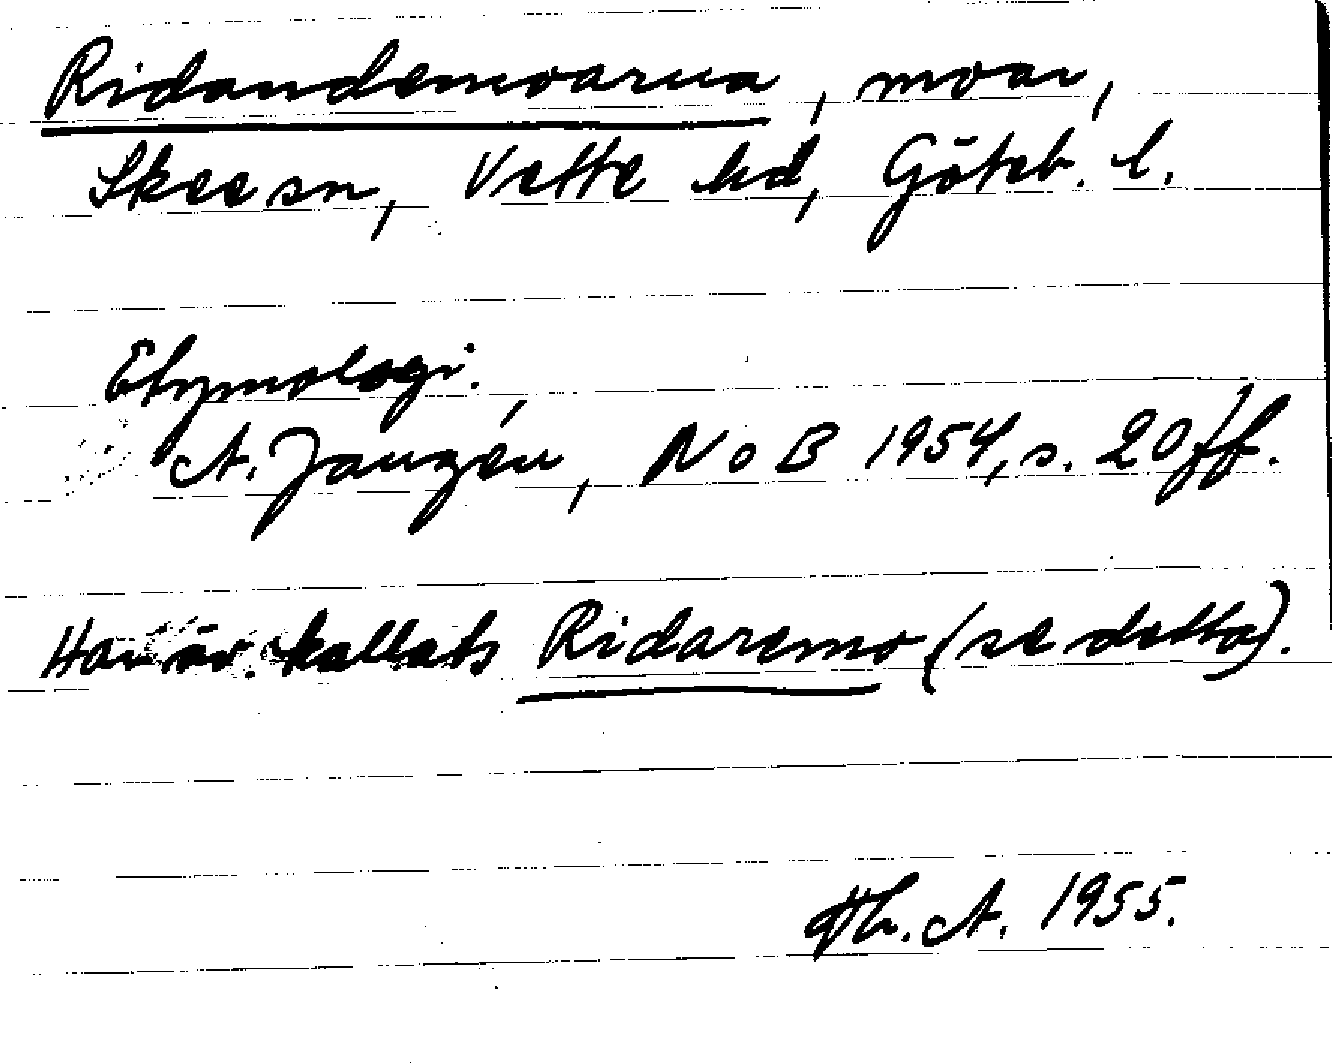 Ridandemoarna, moar,
Skee sn, Vette hd, Göteb. l.
Etymologi.
A. Janzén, NoB 1954, s. 20 ff.
Har äv. kallats Ridaremo (se detta).
Hh. A. 1955.